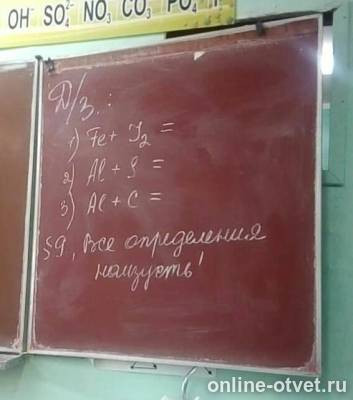 OH⁻ SO₄²⁻ NO₃⁻ CO₃ PO₄
Д/З.:
1) Fe + J₂ =
2) Al + S =
3) Al + C =
§9, Все определения
наизусть!
online-otvet.ru